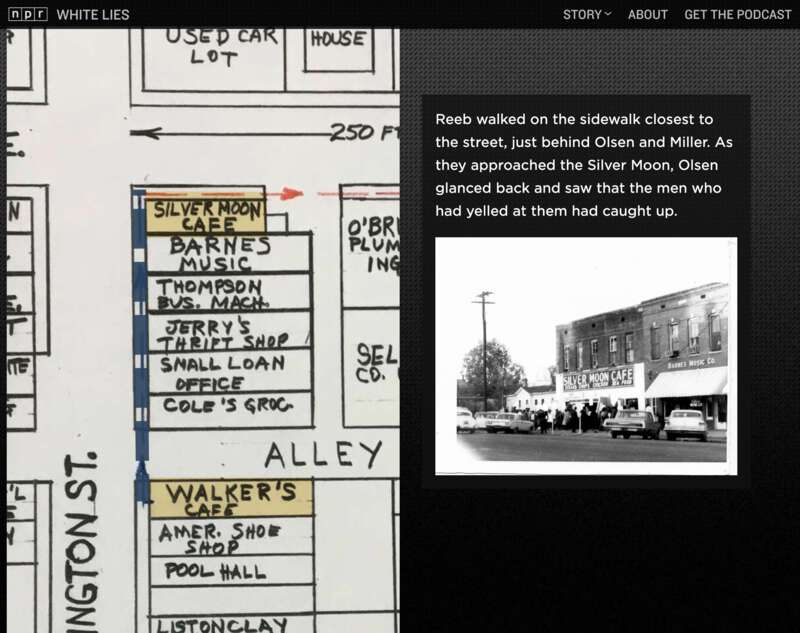 npr WHITE LIES STORY ABOUT GET THE PODCAST
USED CAR
LOT
HOUSE
250 FT
E.
SILVER MOON
CAFE
BARNES
MUSIC
THOMPSON
BUS. MACH.
JERRY'S
THRIFT SHOP
SMALL LOAN
OFFICE
COLE'S GROC.
O'BRI
PLUM
ING
SEL
CO.
N
E.
T
ITE
ALLEY
INGTON ST.
WALKER'S
CAFE
AMER. SHOE
SHOP
POOL HALL
LISTON CLAY
'L
Y
Reeb walked on the sidewalk closest to
the street, just behind Olsen and Miller. As
they approached the Silver Moon, Olsen
glanced back and saw that the men who
had yelled at them had caught up.
SILVER MOON CAFE
BARNES MUSIC CO.